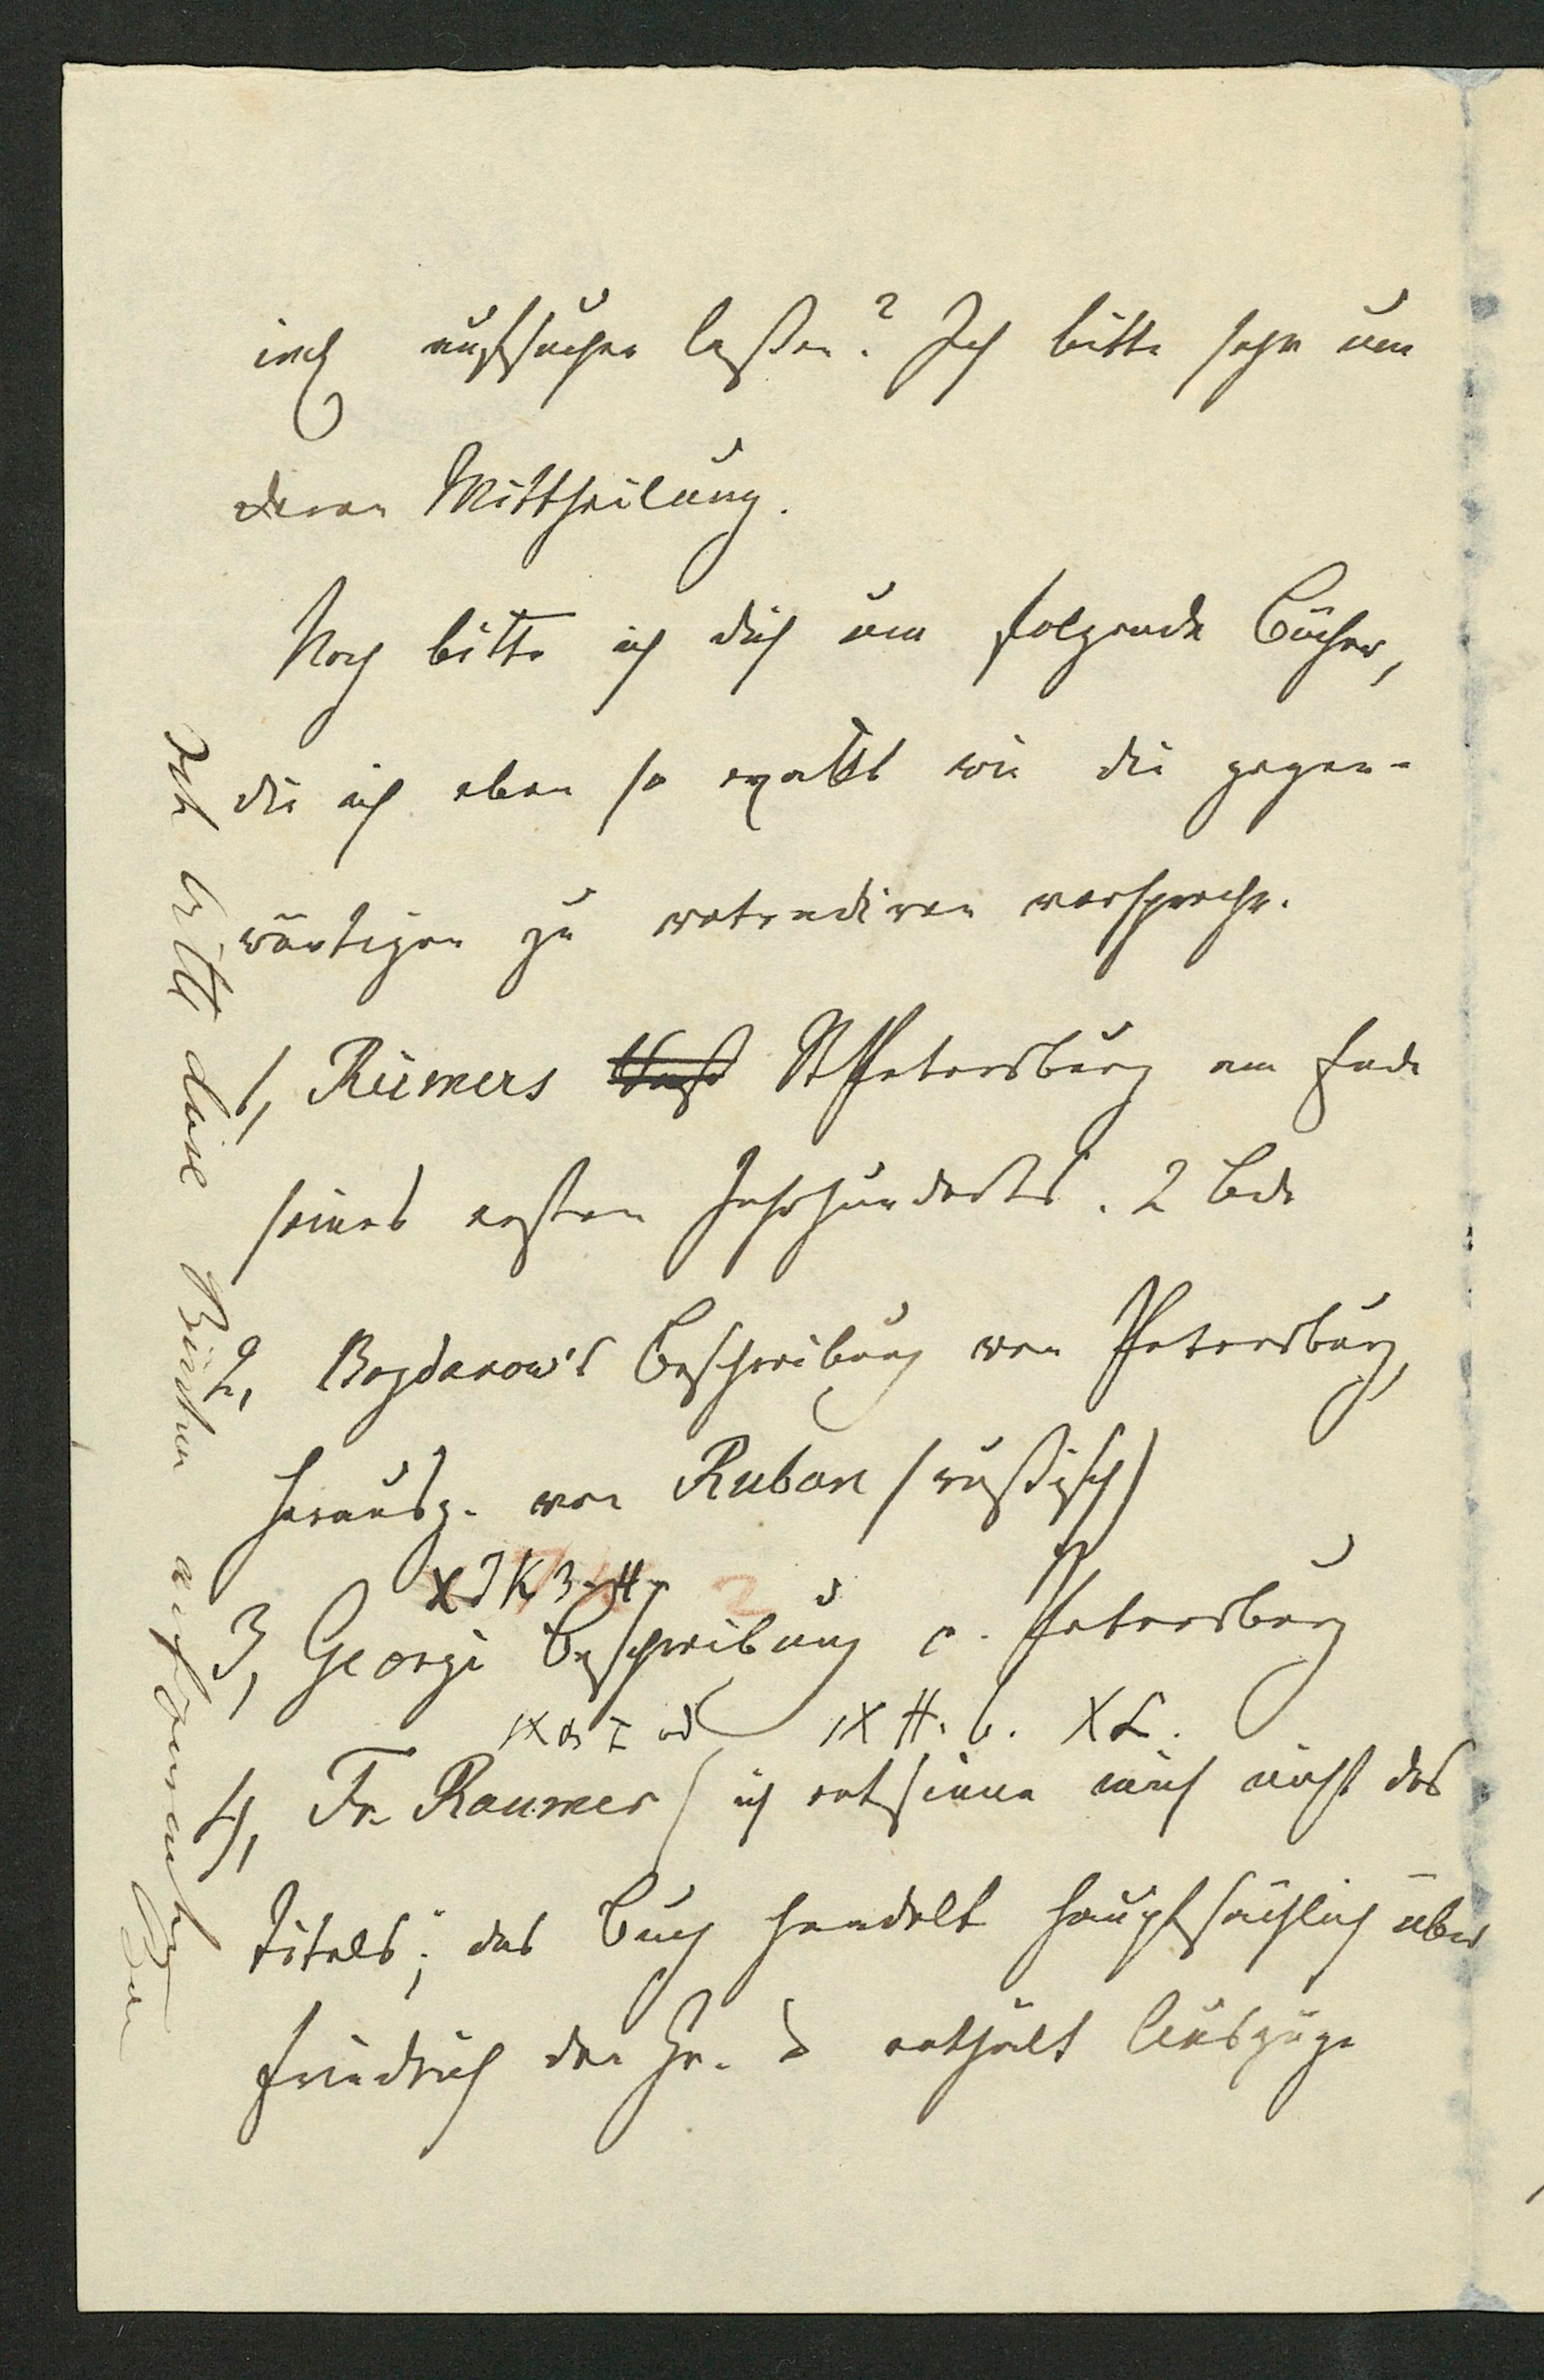 aufsuchen laßen? Ich bitte sehr um
deren Mittheilung.
Noch bitte ich dich um folgende Bücher,
die ich eben so exakt wie die gegen-
wärtigen zu retradiren verspreche.
1, Reimers St Petersburg am Ende
seines ersten Jahrhunderts. 2 Bde
2, Bogdanow's Beschreibung von Petersburg,
herausg. von Ruban (rußisch)
3, Georgi Beschreibung v. Petersburg
IX H. b. X
4, Fr. Raumer (ich entsinne mich nicht des
Titels; das Buch handelt hauptsächlich über
Friedrich den Gr. & enthält Auszüge
Ich bitte diese Bücher